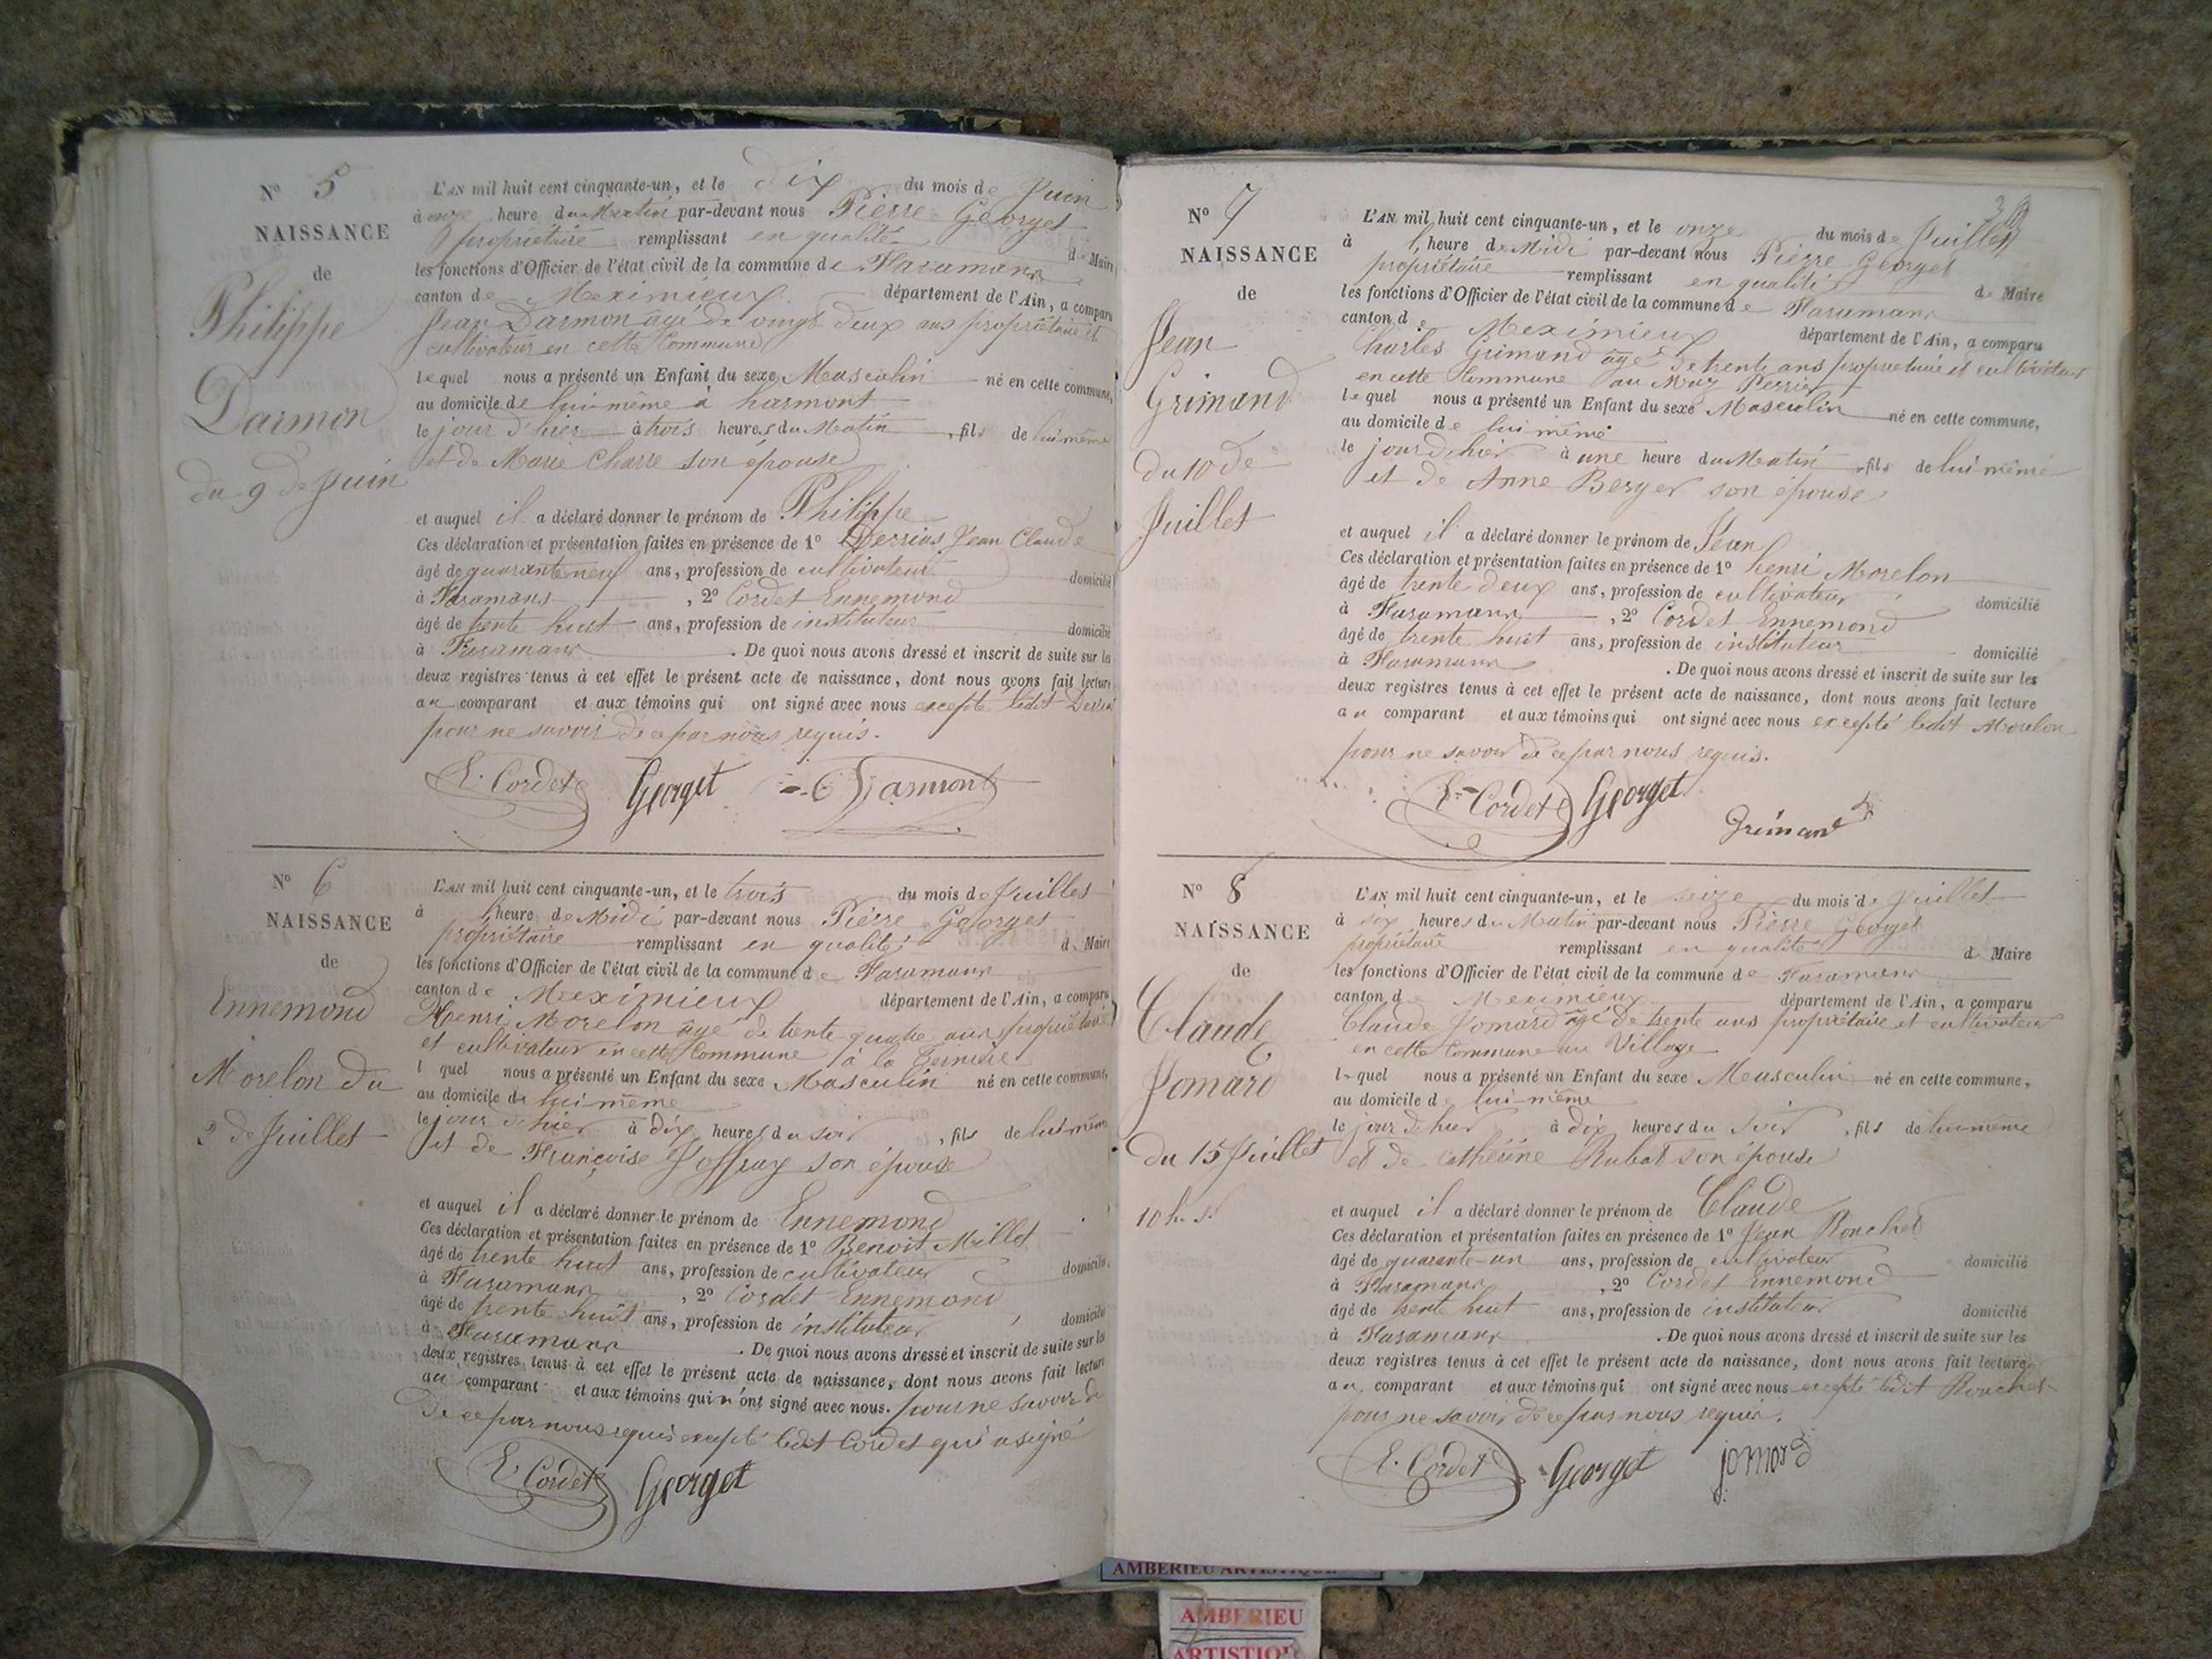 N° 5
NAISSANCE
de
Philippe
Darmon
du 9 de Juin
L'AN mil huit cent cinquante-un, et le dix du mois de Juin
à onze heure du Matin par-devant nous Pierre Georget
propriétaire remplissant en qualité de Maire
les fonctions d'Officier de l'état civil de la commune de Faramans
canton de Meximieux département de l'Ain, a comparu
Jean Darmon âgé de vingt deux ans propriétaire et
cultivateur en cette Commune
lequel nous a présenté un Enfant du sexe Masculin né en cette commune,
au domicile de lui même à harmont
le jour d'hier à trois heures du Matin, fils de lui même
et de Marie Charre son épouse
et auquel il a déclaré donner le prénom de Philippe
Ces déclaration et présentation faites en présence de 1° Derrias Jean Claude
âgé de quarante neuf ans, profession de cultivateur domicilié
à Faramans, 2° Cordet Ennemond
âgé de trente huit ans, profession de instituteur domicilié
à Faramans. De quoi nous avons dressé et inscrit de suite sur les
deux registres tenus à cet effet le présent acte de naissance, dont nous avons fait lecture
au comparant et aux témoins qui ont signé avec nous excepté ledit
pour ne savoir de ce par nous requis.
E. Cordet Georget Darmont
N° 6
NAISSANCE
de
Ennemond
Morelon du
2 de Juillet
L'AN mil huit cent cinquante-un, et le trois du mois de Juillet
à l'heure de Midi par-devant nous Pierre Georget
propriétaire remplissant en qualité de Maire
les fonctions d'Officier de l'état civil de la commune de Faramans
canton de Meximieux département de l'Ain, a comparu
Henri Morelon âgé de trente quatre ans propriétaire
et cultivateur en cette Commune à la
lequel nous a présenté un Enfant du sexe Masculin né en cette commune,
au domicile de lui même
le jour d'hier à dix heures du soir, fils de lui même
et de Françoise Joffray son épouse
et auquel il a déclaré donner le prénom de Ennemond
Ces déclaration et présentation faites en présence de 1° Benoit Millet
âgé de trente huit ans, profession de cultivateur domicilié
à Faramans, 2° Cordet Ennemond
âgé de trente huit ans, profession de instituteur domicilié
à Faramans. De quoi nous avons dressé et inscrit de suite sur les
deux registres tenus à cet effet le présent acte de naissance, dont nous avons fait lecture
au comparant et aux témoins qui n'ont signé avec nous. pour ne savoir de
de ce par nous requis excepté ledit Cordet qui a signé
E. Cordet Georget
N° 7
NAISSANCE
de
Jean
Grimand
du 10 de
Juillet
L'AN mil huit cent cinquante-un, et le onze du mois de Juillet
à l'heure de Midi par-devant nous Pierre Georget
propriétaire remplissant en qualité de Maire
les fonctions d'Officier de l'état civil de la commune de Faramans
canton de Meximieux département de l'Ain, a comparu
Charles Grimand âgé de trente ans propriétaire et cultivateur
en cette Commune au Mas Perrier
lequel nous a présenté un Enfant du sexe Masculin né en cette commune,
au domicile de lui même
le jour de hier à une heure du Matin, fils de lui même
et de Anne Berger son épouse
et auquel il a déclaré donner le prénom de Jean
Ces déclaration et présentation faites en présence de 1° henri Morelon
âgé de trente deux ans, profession de cultivateur domicilié
à Faramans, 2° Cordet Ennemond
âgé de trente huit ans, profession de instituteur domicilié
à Faramans. De quoi nous avons dressé et inscrit de suite sur les
deux registres tenus à cet effet le présent acte de naissance, dont nous avons fait lecture
au comparant et aux témoins qui ont signé avec nous excepté ledit Morelon
pour ne savoir de ce par nous requis.
E. Cordet Georget Grimand
N° 8
NAISSANCE
de
Claude
Jomard
du 15 Juillet
10 h. s.
L'AN mil huit cent cinquante-un, et le seize du mois de Juillet
à six heures du Matin par-devant nous Pierre Georget
propriétaire remplissant en qualité de Maire
les fonctions d'Officier de l'état civil de la commune de Faramans
canton de Meximieux département de l'Ain, a comparu
Claude Jomard âgé de trente ans propriétaire et cultivateur
en cette Commune au Village
lequel nous a présenté un Enfant du sexe Masculin né en cette commune,
au domicile de lui-même
le jour de hier à dix heures du soir, fils de lui même
et de Catherine Rubat son épouse
et auquel il a déclaré donner le prénom de Claude
Ces déclaration et présentation faites en présence de 1° Jean Ronchet
âgé de quarante-un ans, profession de cultivateur domicilié
à Faramans, 2° Cordet Ennemond
âgé de trente huit ans, profession de instituteur domicilié
à Faramans. De quoi nous avons dressé et inscrit de suite sur les
deux registres tenus à cet effet le présent acte de naissance, dont nous avons fait lecture
au comparant et aux témoins qui ont signé avec nous excepté ledit Ronchet
pour ne savoir de ce par nous requis.
E. Cordet Georget jomard
AMBERIEU ARTISTIQUE
AMBERIEU
ARTISTIQU